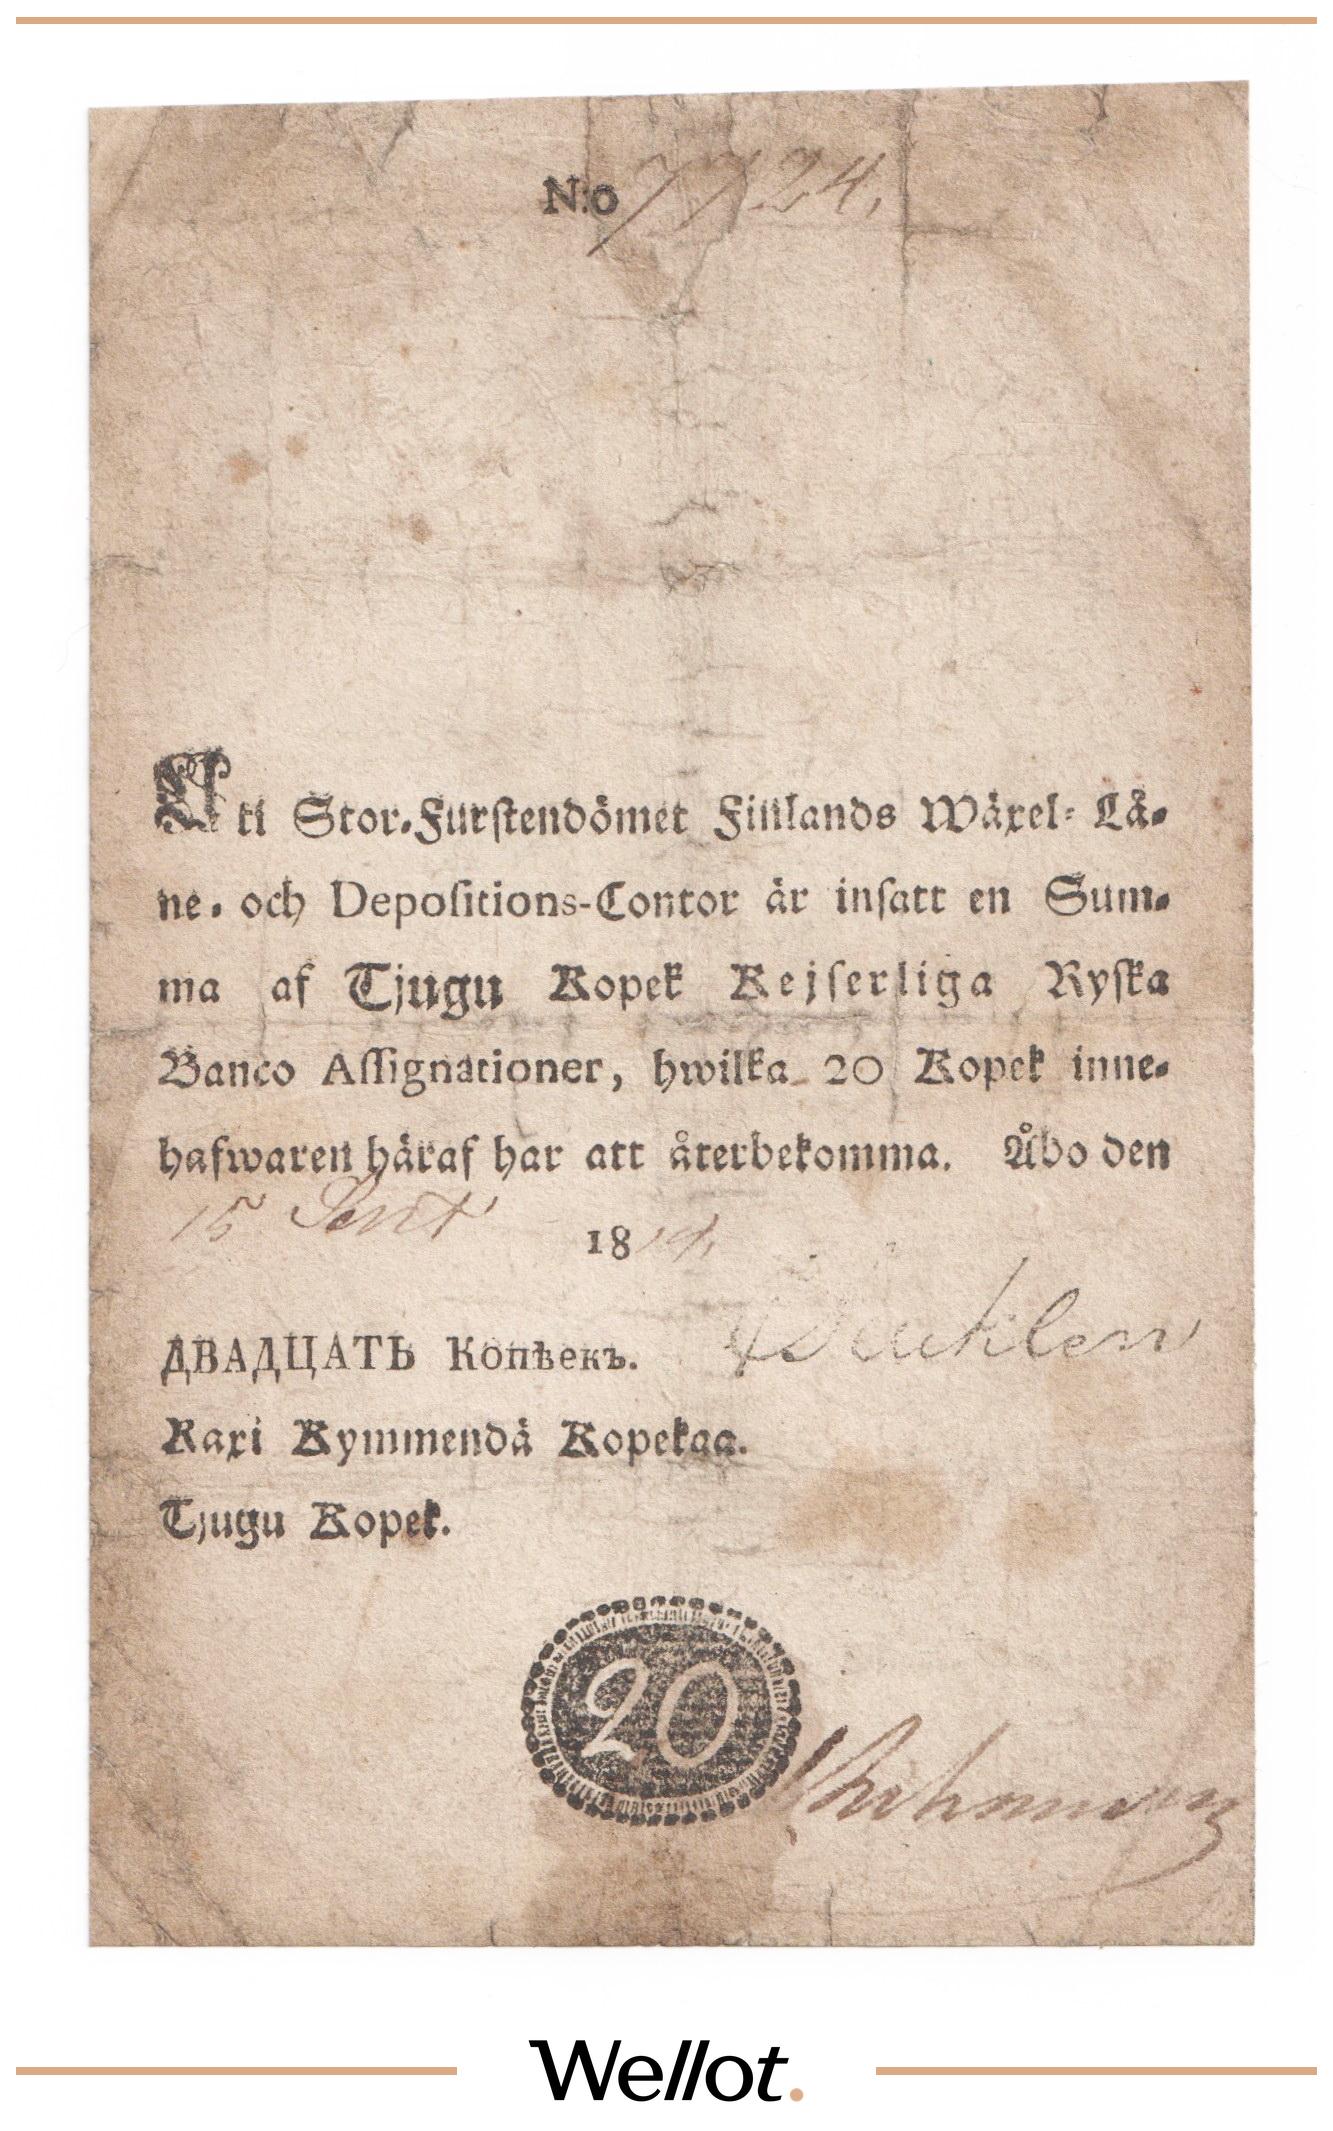 N:o 7724.
Uti Stor-Furstendömet Finlands Wäxel- Lå-
ne- och Depositions-Contor är insatt en Sum-
ma af Tjugu Kopek Kejserliga Ryska
Banco Assignationer, hwilka 20 Kopek inne-
hafwaren häraf har att återbekomma. Åbo den
15 Sept 1814
ДВАДЦАТЬ Копѣекъ.
Kaxi Kymmendä Kopekaa.
Tjugu Kopek.
20
Wellot.